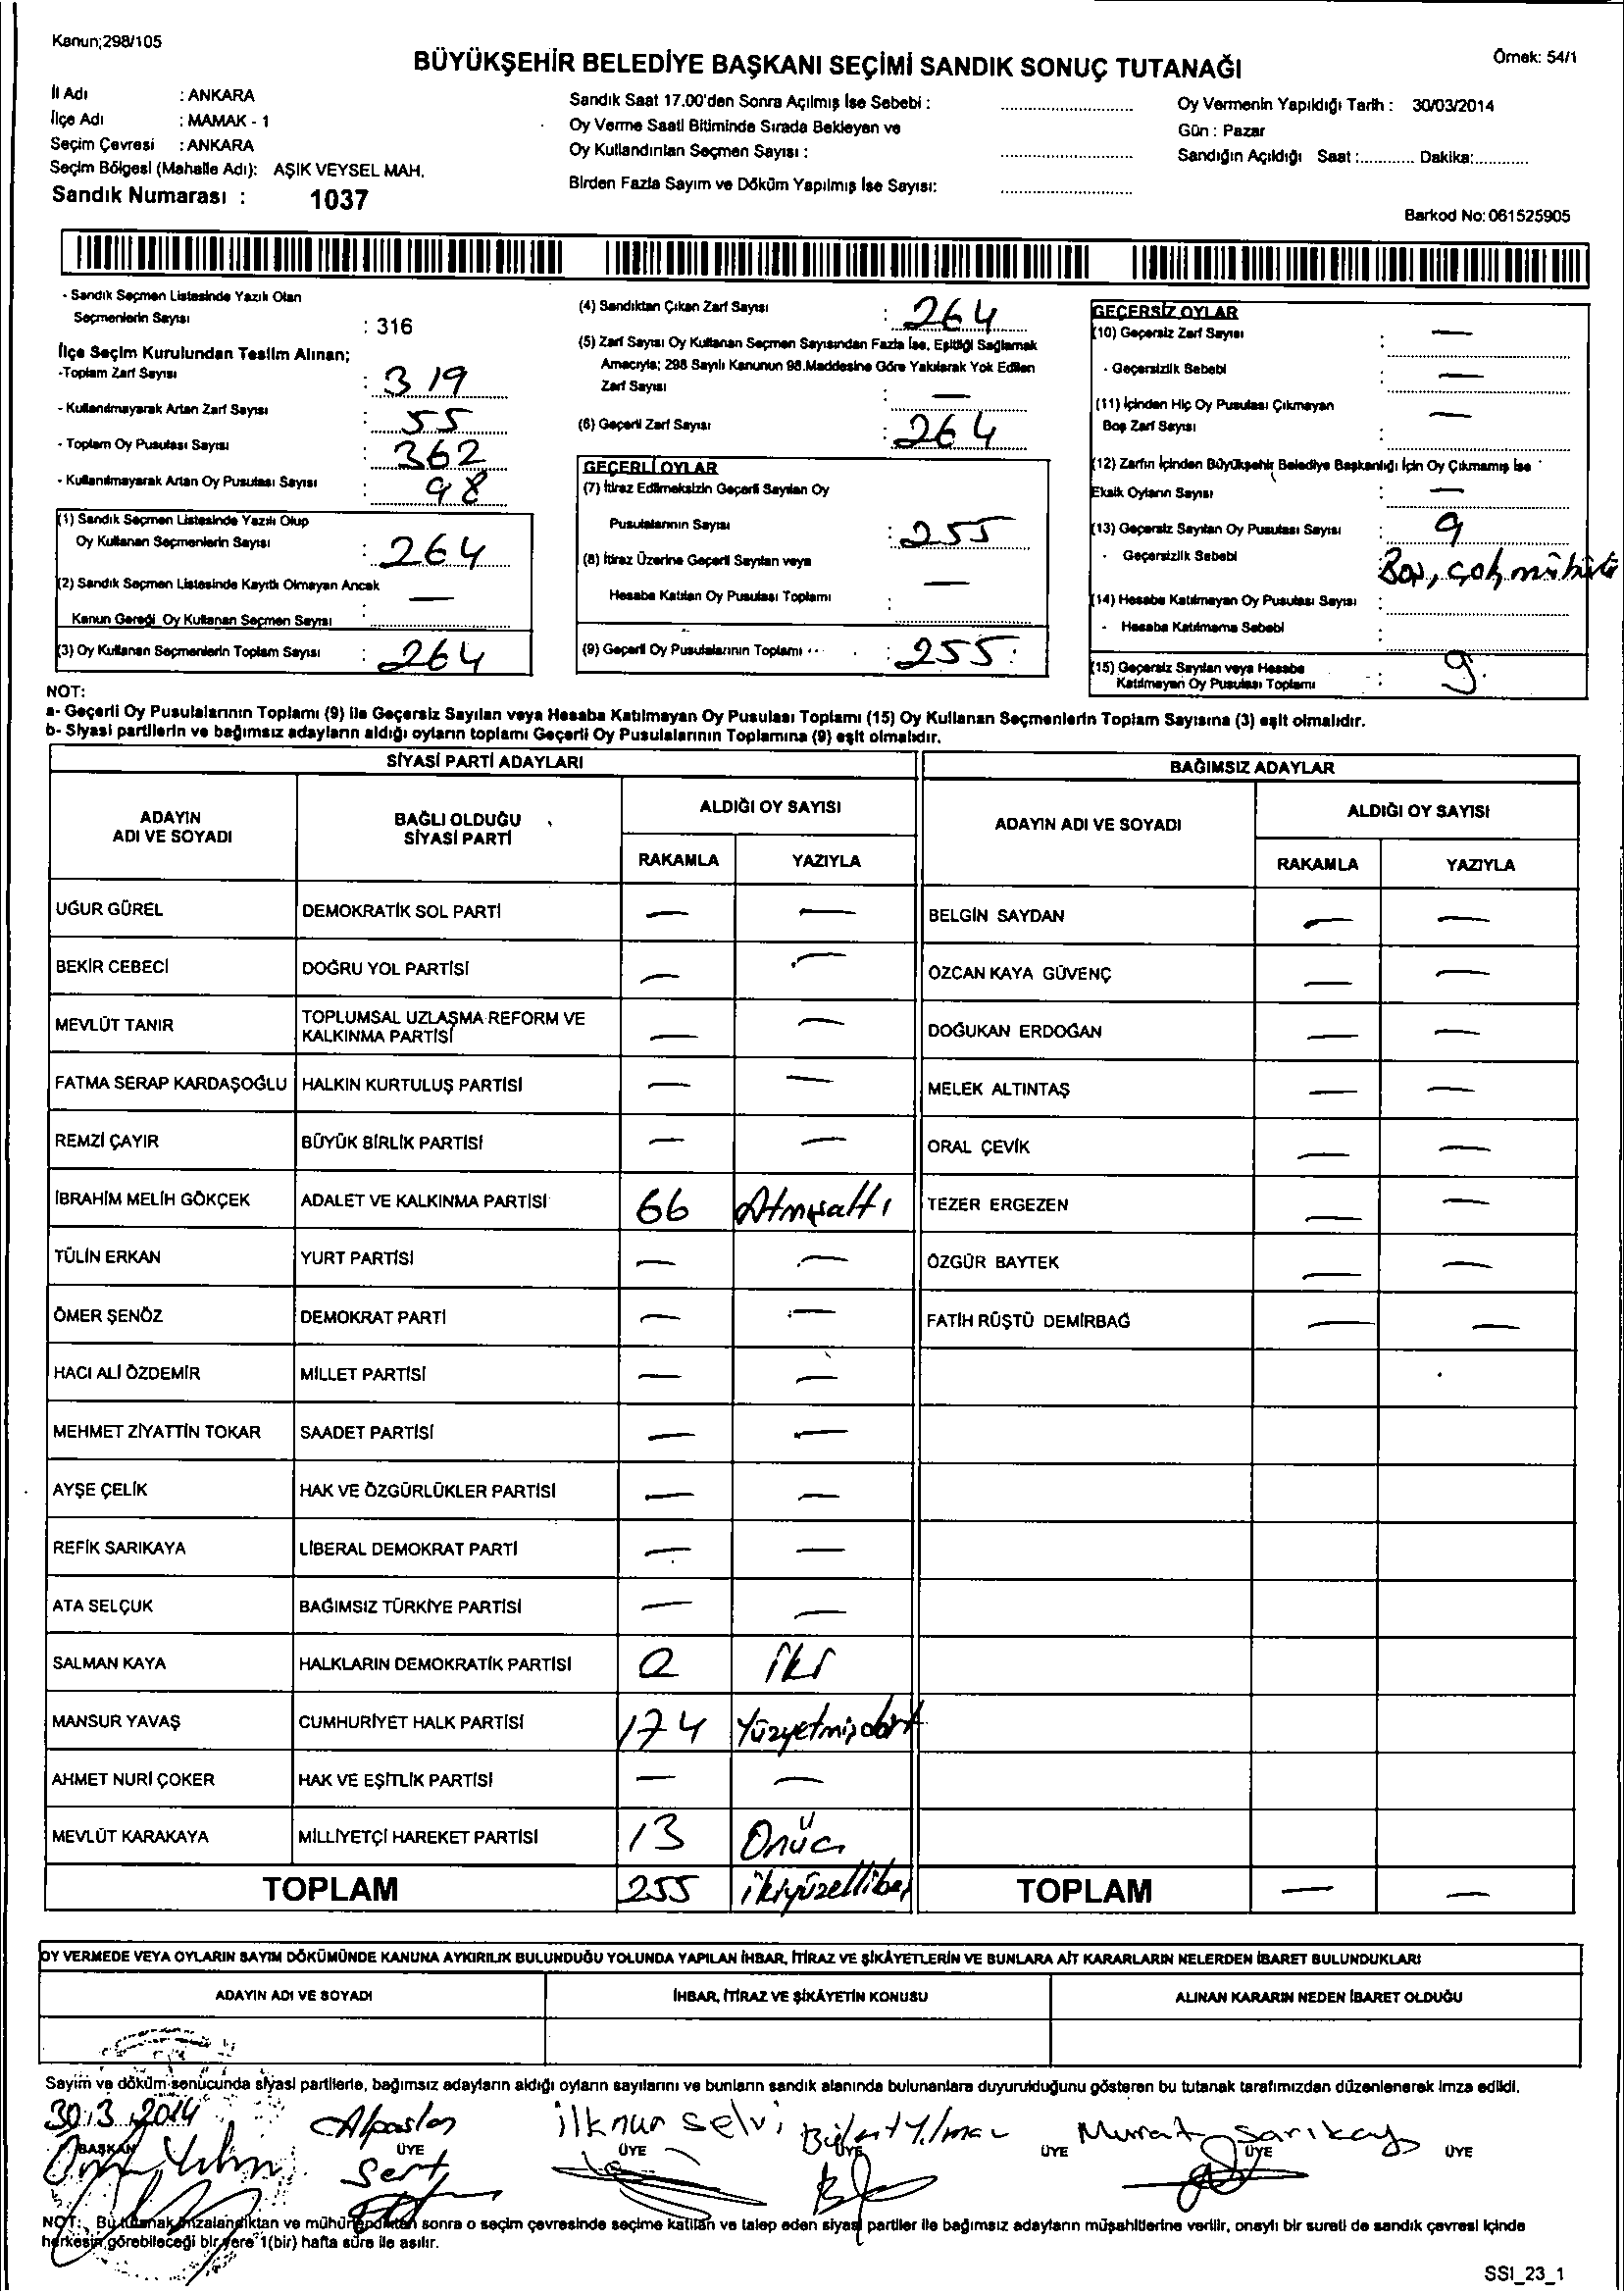 Kanun;298/105
Örnek: 54/1
BÜYÜKŞEHİR BELEDİYE BAŞKANI SEÇİMİ SANDIK SONUÇ TUTANAĞI
İl Adı : ANKARA
İlçe Adı : MAMAK - 1
Seçim Çevresi : ANKARA
Seçim Bölgesi (Mahalle Adı): AŞIK VEYSEL MAH.
Sandık Numarası : 1037
Sandık Saat 17.00'den Sonra Açılmış İse Sebebi : ..............................
Oy Verme Saati Bitiminde Sırada Bekleyen ve
Oy Kullandırılan Seçmen Sayısı : ..............................
Birden Fazla Sayım ve Döküm Yapılmış İse Sayısı: ..............................
Oy Vermenin Yapıldığı Tarih : 30/03/2014
Gün : Pazar
Sandığın Açıldığı Saat :............ Dakika:............
Barkod No: 061525905
- Sandık Seçmen Listesinde Yazılı Olan
Seçmenlerin Sayısı : 316
İlçe Seçim Kurulundan Teslim Alınan;
-Toplam Zarf Sayısı : 319
- Kullanılmayarak Artan Zarf Sayısı : 55
- Toplam Oy Pusulası Sayısı : 362
- Kullanılmayarak Artan Oy Pusulası Sayısı : 98
(1) Sandık Seçmen Listesinde Yazılı Olup
Oy Kullanan Seçmenlerin Sayısı : 264
(2) Sandık Seçmen Listesinde Kayıtlı Olmayan Ancak
Kanun Gereği Oy Kullanan Seçmen Sayısı : —
(3) Oy Kullanan Seçmenlerin Toplam Sayısı : 264
(4) Sandıktan Çıkan Zarf Sayısı : 264
(5) Zarf Sayısı Oy Kullanan Seçmen Sayısından Fazla İse, Eşitliği Sağlamak
Amacıyla; 298 Sayılı Kanunun 98.Maddesine Göre Yakılarak Yok Edilen
Zarf Sayısı : —
(6) Geçerli Zarf Sayısı : 264
GEÇERLİ OYLAR
(7) İtiraz Edilmeksizin Geçerli Sayılan Oy
Pusulalarının Sayısı : 255
(8) İtiraz Üzerine Geçerli Sayılan veya
Hesaba Katılan Oy Pusulası Toplamı : —
(9) Geçerli Oy Pusulalarının Toplamı : 255
GEÇERSİZ OYLAR
(10) Geçersiz Zarf Sayısı : —
- Geçersizlik Sebebi : —
(11) İçinden Hiç Oy Pusulası Çıkmayan
Boş Zarf Sayısı : —
(12) Zarfın İçinden Büyükşehir Belediye Başkanlığı İçin Oy Çıkmamış İse
Eksik Oyların Sayısı : —
(13) Geçersiz Sayılan Oy Pusulası Sayısı : 9
- Geçersizlik Sebebi : Boş, çok
(14) Hesaba Katılmayan Oy Pusulası Sayısı :
- Hesaba Katılmama Sebebi :
(15) Geçersiz Sayılan veya Hesaba
Katılmayan Oy Pusulası Toplamı : 9
NOT:
a- Geçerli Oy Pusulalarının Toplamı (9) ile Geçersiz Sayılan veya Hesaba Katılmayan Oy Pusulası Toplamı (15) Oy Kullanan Seçmenlerin Toplam Sayısına (3) eşit olmalıdır.
b- Siyasi partilerin ve bağımsız adayların aldığı oyların toplamı Geçerli Oy Pusulalarının Toplamına (9) eşit olmalıdır.
SİYASİ PARTİ ADAYLARI
ADAYIN ADI VE SOYADI
BAĞLI OLDUĞU SİYASİ PARTİ
ALDIĞI OY SAYISI
RAKAMLA YAZIYLA
UĞUR GÜREL DEMOKRATİK SOL PARTİ — —
BEKİR CEBECİ DOĞRU YOL PARTİSİ — —
MEVLÜT TANIR TOPLUMSAL UZLAŞMA REFORM VE KALKINMA PARTİSİ — —
FATMA SERAP KARDAŞOĞLU HALKIN KURTULUŞ PARTİSİ — —
REMZİ ÇAYIR BÜYÜK BİRLİK PARTİSİ — —
İBRAHİM MELİH GÖKÇEK ADALET VE KALKINMA PARTİSİ 66 Atmışaltı
TÜLİN ERKAN YURT PARTİSİ — —
ÖMER ŞENÖZ DEMOKRAT PARTİ — —
HACI ALİ ÖZDEMİR MİLLET PARTİSİ — —
MEHMET ZİYATTİN TOKAR SAADET PARTİSİ — —
AYŞE ÇELİK HAK VE ÖZGÜRLÜKLER PARTİSİ — —
REFİK SARIKAYA LİBERAL DEMOKRAT PARTİ — —
ATA SELÇUK BAĞIMSIZ TÜRKİYE PARTİSİ — —
SALMAN KAYA HALKLARIN DEMOKRATİK PARTİSİ 2 iki
MANSUR YAVAŞ CUMHURİYET HALK PARTİSİ 174 Yüzyetmişdört
AHMET NURİ ÇOKER HAK VE EŞİTLİK PARTİSİ — —
MEVLÜT KARAKAYA MİLLİYETÇİ HAREKET PARTİSİ 13 Onüç
TOPLAM 255 ikiyüzellibeş
BAĞIMSIZ ADAYLAR
ADAYIN ADI VE SOYADI
ALDIĞI OY SAYISI
RAKAMLA YAZIYLA
BELGİN SAYDAN — —
ÖZCAN KAYA GÜVENÇ — —
DOĞUKAN ERDOĞAN — —
MELEK ALTINTAŞ — —
ORAL ÇEVİK — —
TEZER ERGEZEN — —
ÖZGÜR BAYTEK — —
FATİH RÜŞTÜ DEMİRBAĞ — —
TOPLAM — —
OY VERMEDE VEYA OYLARIN SAYIM DÖKÜMÜNDE KANUNA AYKIRILIK BULUNDUĞU YOLUNDA YAPILAN İHBAR, İTİRAZ VE ŞİKÂYETLERİN VE BUNLARA AİT KARARLARIN NELERDEN İBARET BULUNDUKLARI
ADAYIN ADI VE SOYADI İHBAR, İTİRAZ VE ŞİKÂYETİN KONUSU ALINAN KARARIN NEDEN İBARET OLDUĞU
Sayım ve döküm sonucunda siyasi partilerle, bağımsız adayların aldığı oyların sayılarını ve bunların sandık alanında bulunanlara duyurulduğunu gösteren bu tutanak tarafımızdan düzenlenerek imza edildi.
30.3.2014 Alpaslan ilknur Selvi Bülent Yılmaz Murat Sarıkaya
BAŞKAN ÜYE ÜYE ÜYE ÜYE ÜYE ÜYE
Sert
NOT: Bu tutanak imzalandıktan ve mühürlendikten sonra o seçim çevresinde seçime katılan ve talep eden siyasi partiler ile bağımsız adayların müşahitlerine verilir, onaylı bir sureti de sandık çevresi içinde
herkesin görebileceği bir yere 1(bir) hafta süre ile asılır.
SSI_23_1